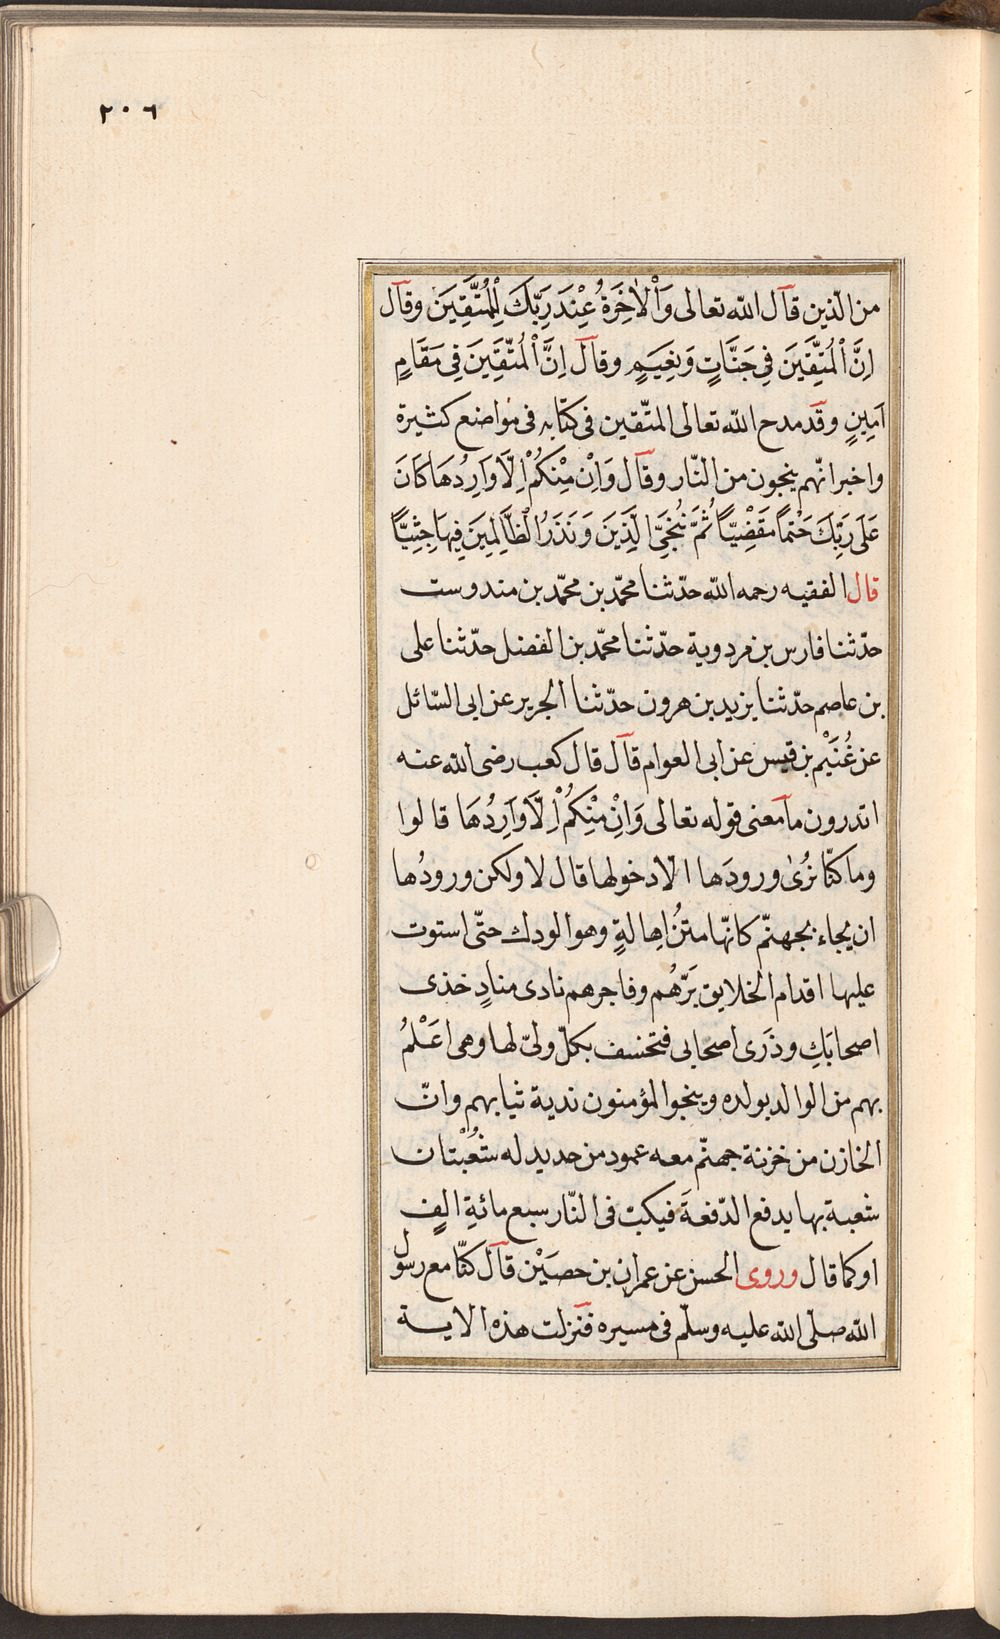 ٢٠٦
من الّذين قال الله تعالى وَاْلاٰخِرَةُ عِنْدَ رَبِّكَ لِلْمُتَّقِينَ وقال
اِنَّ اْلمُتَّقِينَ فِي جَنَّاتٍ وَنَعِيمٍ وقال اِنَّ اْلمُتَّقِينَ فِي مَقَامٍ
اَمِينٍ وقد مدح الله تعالى المتّقين فى كتابه فى مواضع كثيرة
واخبر انّهم ينجون من النّار وقال وَاِنْ مِنْكُمْ اِلَّا وَارِدُهَا كَانَ
عَلَى رَبِّكَ حَتْماً مَقْضِيّاً ثُمَّ نُنَجِّي الَّذِينَ وَنَذَرُ الْظَّالِمِينَ فِيهَا جِثِيًّا
قال الفقيه رحمه الله حدّثنا محمّد بن محمّد بن مندوست
حدّثنا فارس بن فردوية حدّثنا محمّد بن الفضل حدّثنا على
بن عاصم حدّثنا يزيد بن هرون حدّثنا الجرير عن ابى السّائل
عن غُنَيْم بن قيس عن ابى العوام قال قال كعب رضى الله عنه
اتدرون ما معنى قوله تعالى وَاِنْ مِنْكُمْ اِلَّا وَارِدُهَا قالوا
وما كنّا نُرىٰ ورودَها الا دخولها قال لا ولكن ورودُها
ان يجاء بجهنّم كانّها متنُ اِهالةٍ وهو الودك حتّى استوت
عليها اقدام الخلايق بَرّهُم وفاجرهم نادى منادٍ خذى
اصحابَكِ وذَرى اصحابى فتخسف بكلّ ولىّ لها وهى اعْلمُ
بهم من الوالد بولده وينجوا المؤمنون ندية ثيابهم وانّ
الخازن من خزنة جهنّم معه عمود من حديد له شُعْبتان
شعبة بها يدفع الدّفعةَ فيكبّ فى النّار سبع مائةِ الفٍ
او كما قال وروى الحسن عن عمران بن حصَيْن قال كنّا مع رسول
الله صلّى الله عليه وسلّم فى مسيره فنزلت هذه الاية